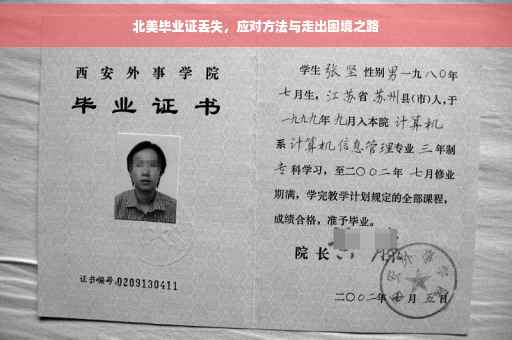 北美毕业证丢失，应对方法与走出困境之路
西安外事学院
毕业证书
证书编号:0209130411
学生 张坚 性别 男 一九八〇年
七月生，江苏省 苏州县(市)人，于
一九九九年 九月入本院 计算机
系 计算机信息管理 专业 三 年制
专科学习，至二〇〇二年 七月修业
期满，学完教学计划规定的全部课程，
成绩合格，准予毕业。
院长
二〇〇二年 月五日